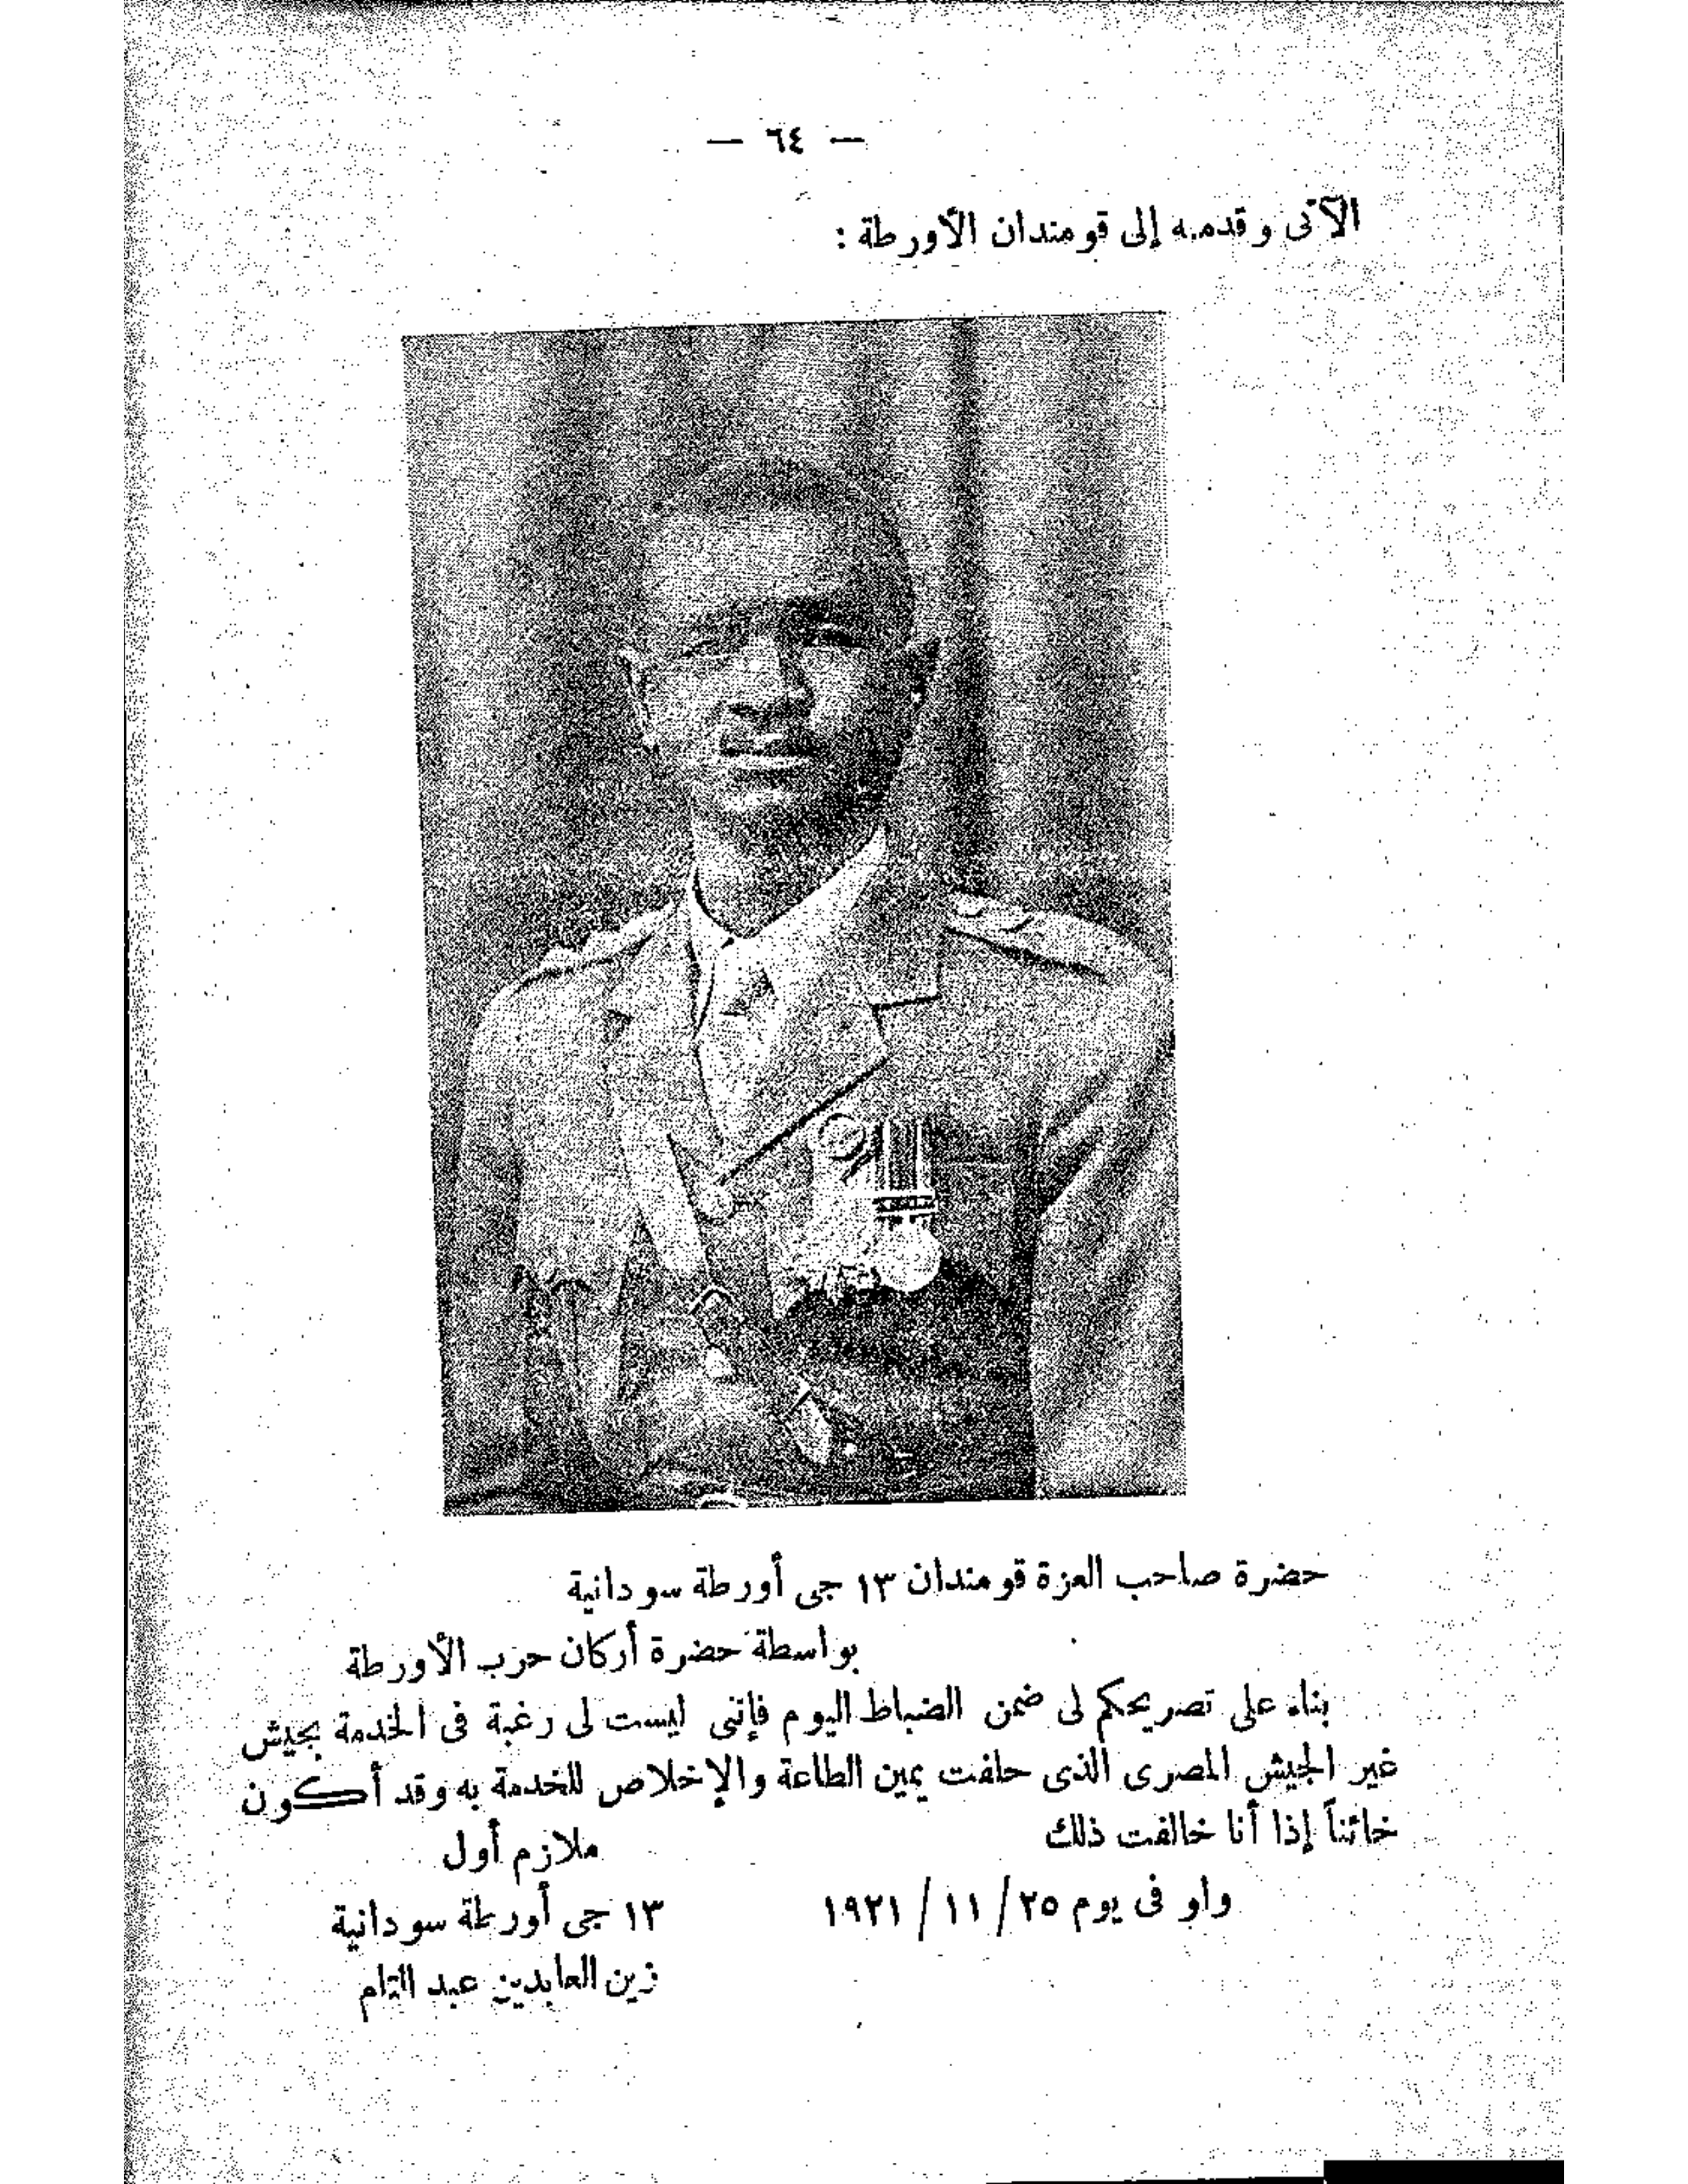 — ٦٤ —
الآتى وقدمه إلى قومندان الأورطة :
حضرة صاحب العزة قومندان ١٣ جى أورطة سودانية
بواسطة حضرة أركان حرب الأورطة
بناء على تصريحكم لى ضمن الضباط اليوم فإننى ليست لى رغبة فى الخدمة بجيش
غير الجيش المصرى الذى حلفت يمين الطاعة والإخلاص للخدمة به وقد أكون
خائناً إذا أنا خالفت ذلك
ملازم أول
واو فى يوم ٢٥ / ١١ / ١٩٢١
١٣ جى أورطة سودانية
زين العابدين عبد التام